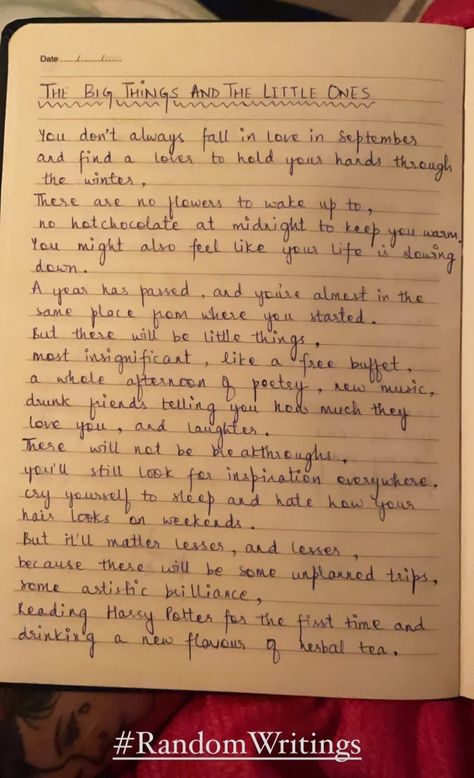 Date ....../....../......
THE BIG THINGS AND THE LITTLE ONES
You don't always fall in love in september
and find a lover to hold your hands through
the winter,
There are no flowers to wake up to,
no hotchocolate at midnight to keep you warm.
You might also feel like your life is slowing
down.
A year has passed, and you're almost in the
same place from where you started.
But there will be little things,
most insignificant, like a free buffet,
a whole afternoon of poetry, new music,
drunk friends telling you how much they
love you, and laughter.
There will not be breakthroughs,
you'll still look for inspiration everywhere,
cry yourself to sleep and hate how your
hair looks on weekends.
But it'll matter lesser, and lesser,
because there will be some unplanned trips,
some artistic brilliance,
Reading Harry Potter for the first time and
drinking a new flavour of herbal tea.
#RandomWritings